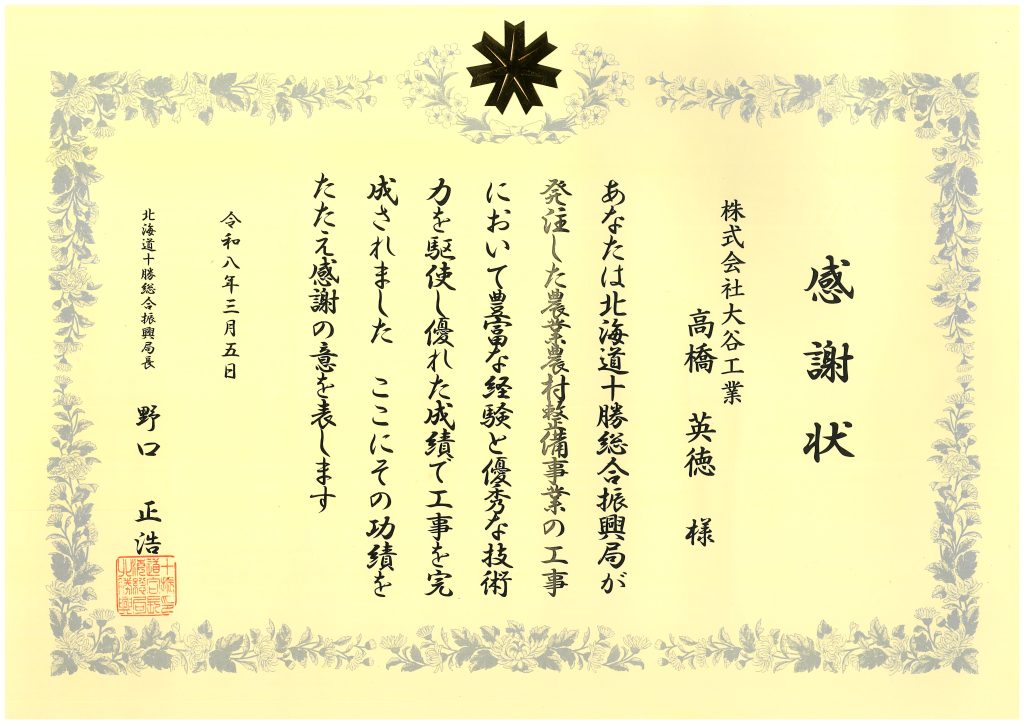 感謝状
株式会社大谷工業
高橋 英徳 様
あなたは北海道十勝総合振興局が
発注した農業農村整備事業の工事
において豊富な経験と優秀な技術
力を駆使し優れた成績で工事を完
成されました ここにその功績を
たたえ感謝の意を表します
令和八年三月五日
北海道十勝総合振興局長 野口 正浩